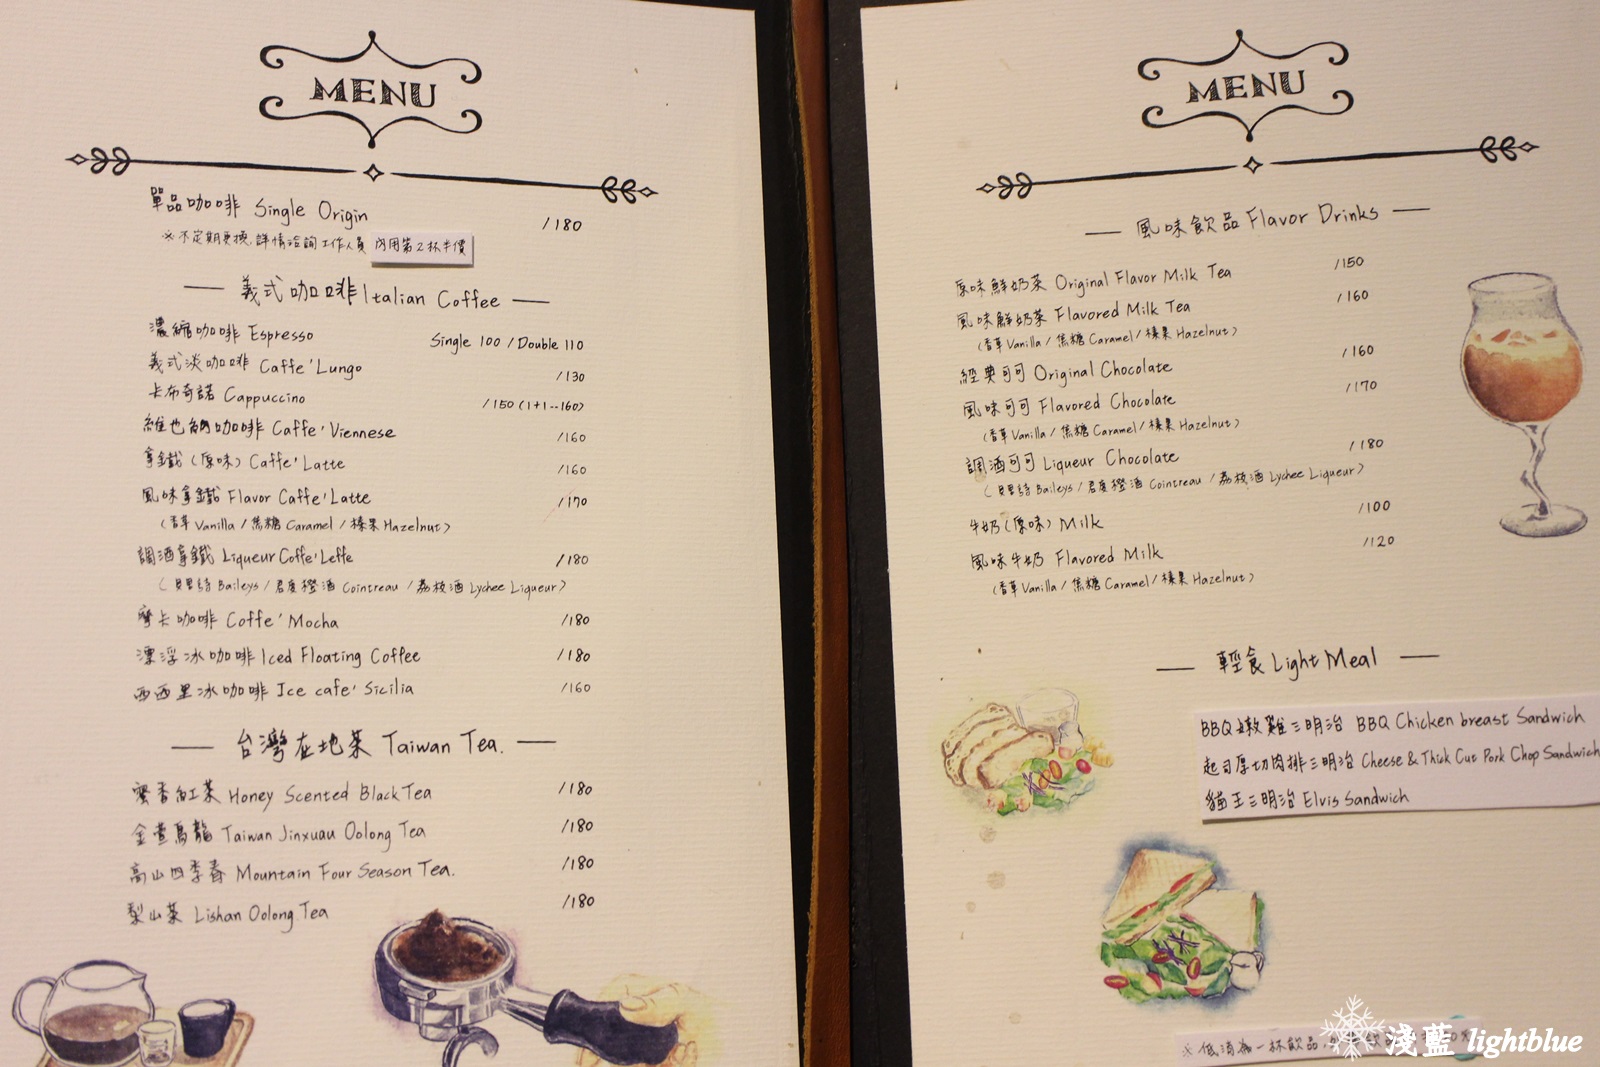 MENU
單品咖啡 Single Origin /180
※不定期更換,詳情洽詢工作人員 內用第2杯半價
義式咖啡 Italian Coffee
濃縮咖啡 Espresso Single 100 / Double 110
義式淡咖啡 Caffe'Lungo /130
卡布奇諾 Cappuccino /150 (1+1--160)
維也納咖啡 Caffe'Viennese /160
拿鐵(原味) Caffe'Latte /160
風味拿鐵 Flavor Caffe'Latte /170
(香草Vanilla / 焦糖 Caramel / 榛果 Hazelnut)
調酒拿鐵 Liqueur Coffe'Leffe /180
(貝里詩 Baileys / 君度橙酒 Cointreau / 荔枝酒 Lychee Liqueur)
摩卡咖啡 Coffe'Mocha /180
漂浮冰咖啡 Iced Floating Coffee /180
西西里冰咖啡 Ice cafe' Sicilia /160
台灣在地茶 Taiwan Tea.
蜜香紅茶 Honey Scented Black Tea /180
金萱烏龍 Taiwan Jinxuau Oolong Tea /180
高山四季春 Mountain Four Season Tea. /180
梨山茶 Lishan Oolong Tea /180
MENU
風味飲品 Flavor Drinks
原味鮮奶茶 Original Flavor Milk Tea /150
風味鮮奶茶 Flavored Milk Tea /160
(香草Vanilla / 焦糖 Caramel / 榛果 Hazelnut)
經典可可 Original Chocolate /160
風味可可 Flavored Chocolate /170
(香草Vanilla / 焦糖 Caramel / 榛果 Hazelnut)
調酒可可 Liqueur Chocolate /180
(貝里詩 Baileys / 君度橙酒 Cointreau / 荔枝酒 Lychee Liqueur)
牛奶(原味) Milk /100
風味牛奶 Flavored Milk /120
(香草Vanilla / 焦糖 Caramel / 榛果 Hazelnut)
輕食 Light Meal
BBQ嫩雞三明治 BBQ Chicken breast Sandwich
起司厚切肉排三明治 Cheese & Thick Cut Pork Chop Sandwich
貓王三明治 Elvis Sandwich
※低消為一杯飲品,
淺藍 lightblue